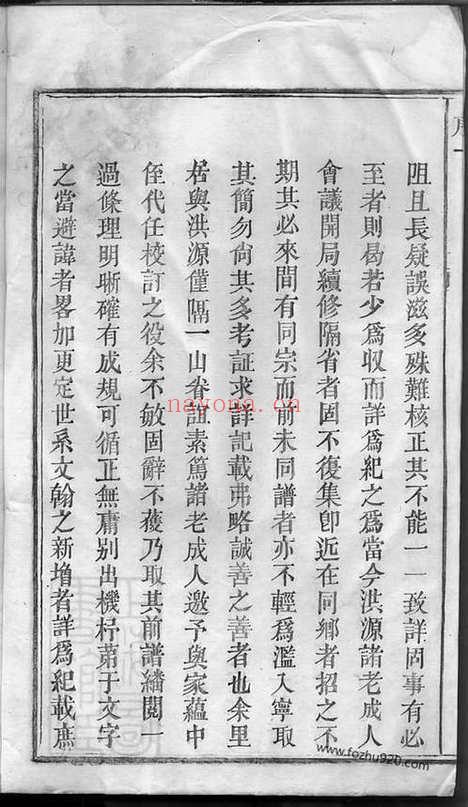 阻且長疑誤滋多殊難核正其不能一一致詳固事有必
至者則曷若少爲収而詳爲紀之爲當今洪源諸老成人
會議開局續修隔省者固不復集卽近在同鄕者招之不
期其必來間有同宗而前未同譜者亦不輕爲濫入寧取
其簡勿尙其多考証求詳記載弗略誠善之善者也余里
居與洪源僅隔一山眷誼素篤諸老成人邀予與家蘊中
侄代任校訂之役余不敏固辭不獲乃取其前譜繙閱一
過條理明晰確有成規可循正無庸别出機杼第于文字
之當避諱者畧加更定世系文翰之新增者詳爲紀載庶
nayona.cn
www.fozhu920.com